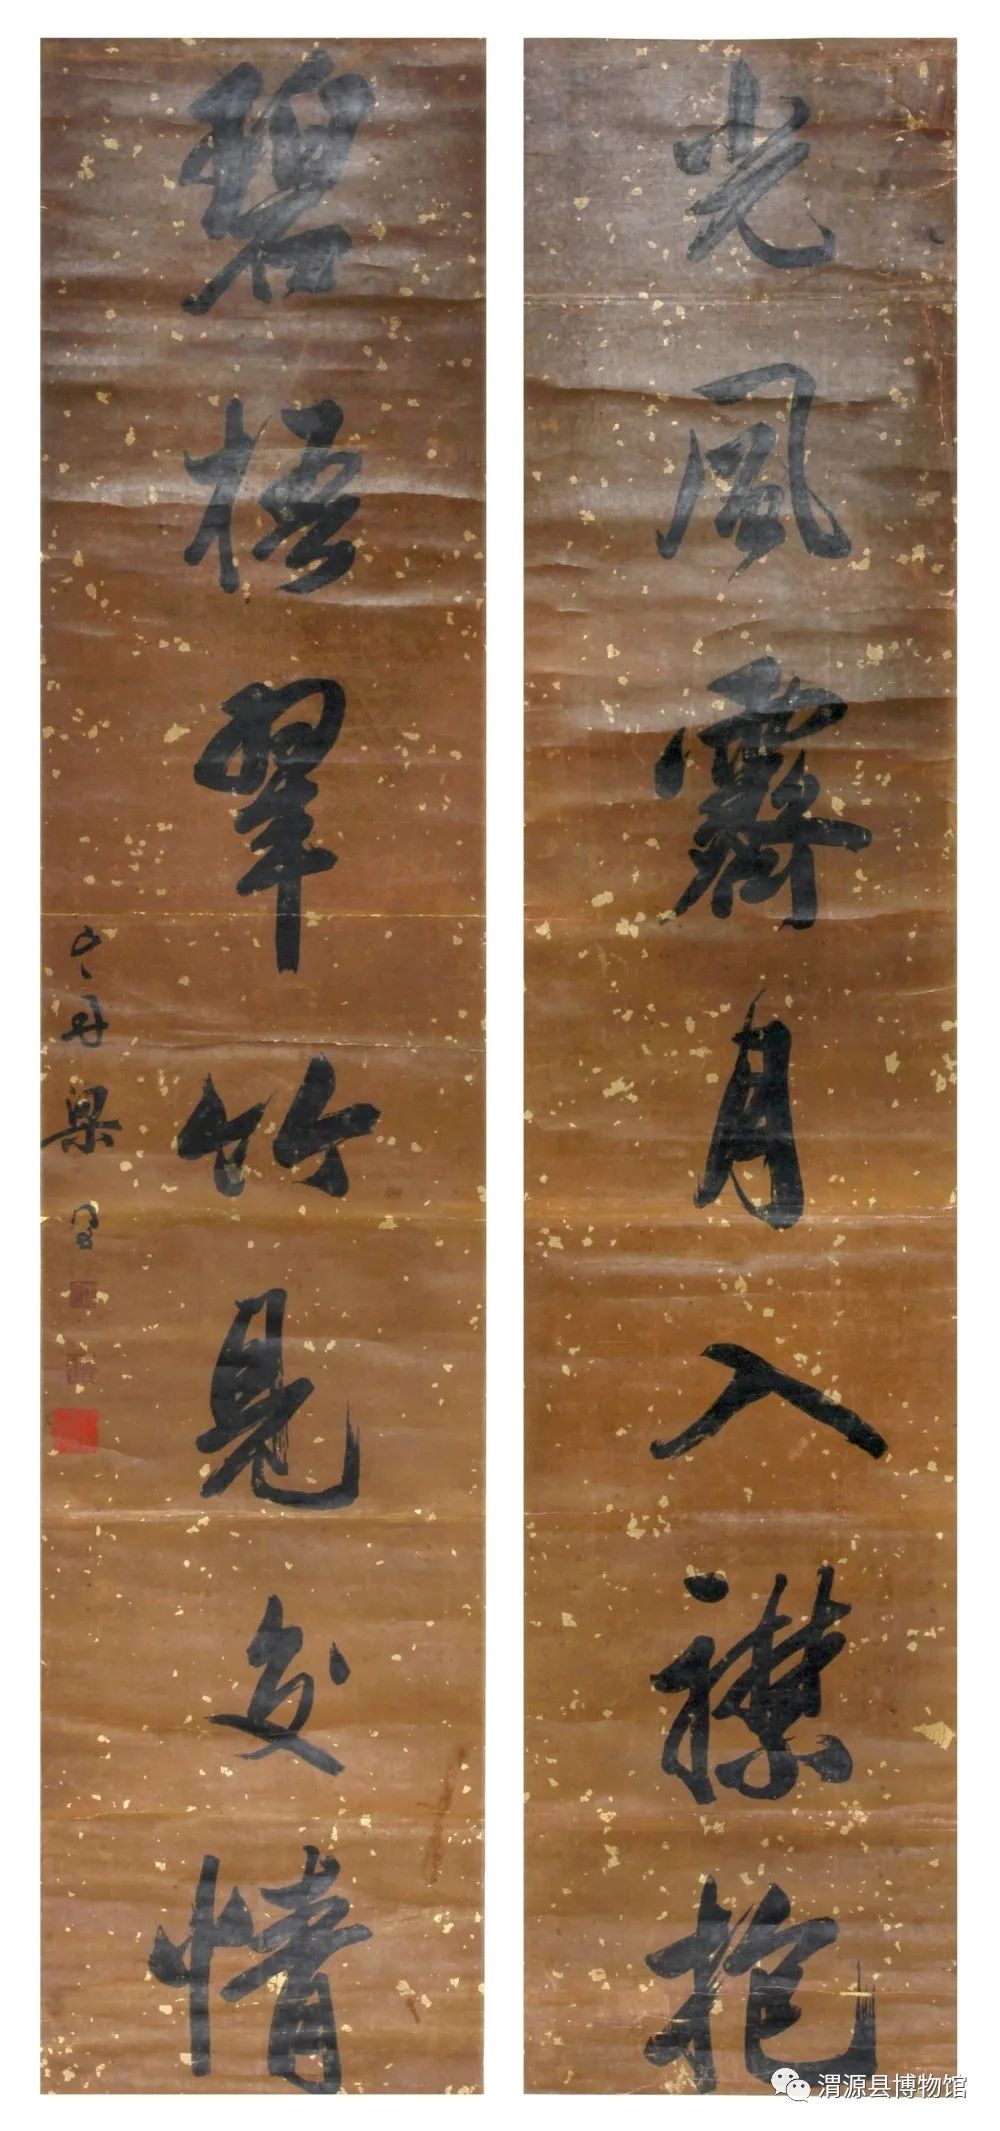 光風霽月入襟抱
碧梧翠竹見交情
山舟梁同書
渭源县博物馆